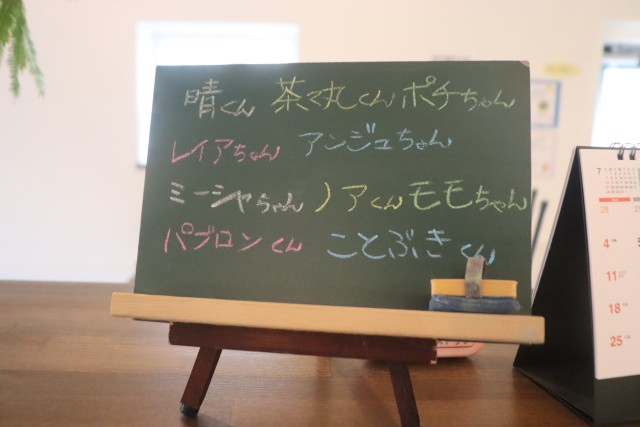 晴くん 茶々丸くん ポチちゃん
レイアちゃん アンジュちゃん
ミーシャちゃん ノアくん モモちゃん
パブロンくん ことぶきくん
7
28
4
11
18
25